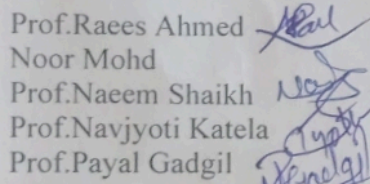 Prof.Raees Ahmed
Noor Mohd
Prof.Naeem Shaikh
Prof.Navjyoti Katela
Prof.Payal Gadgil